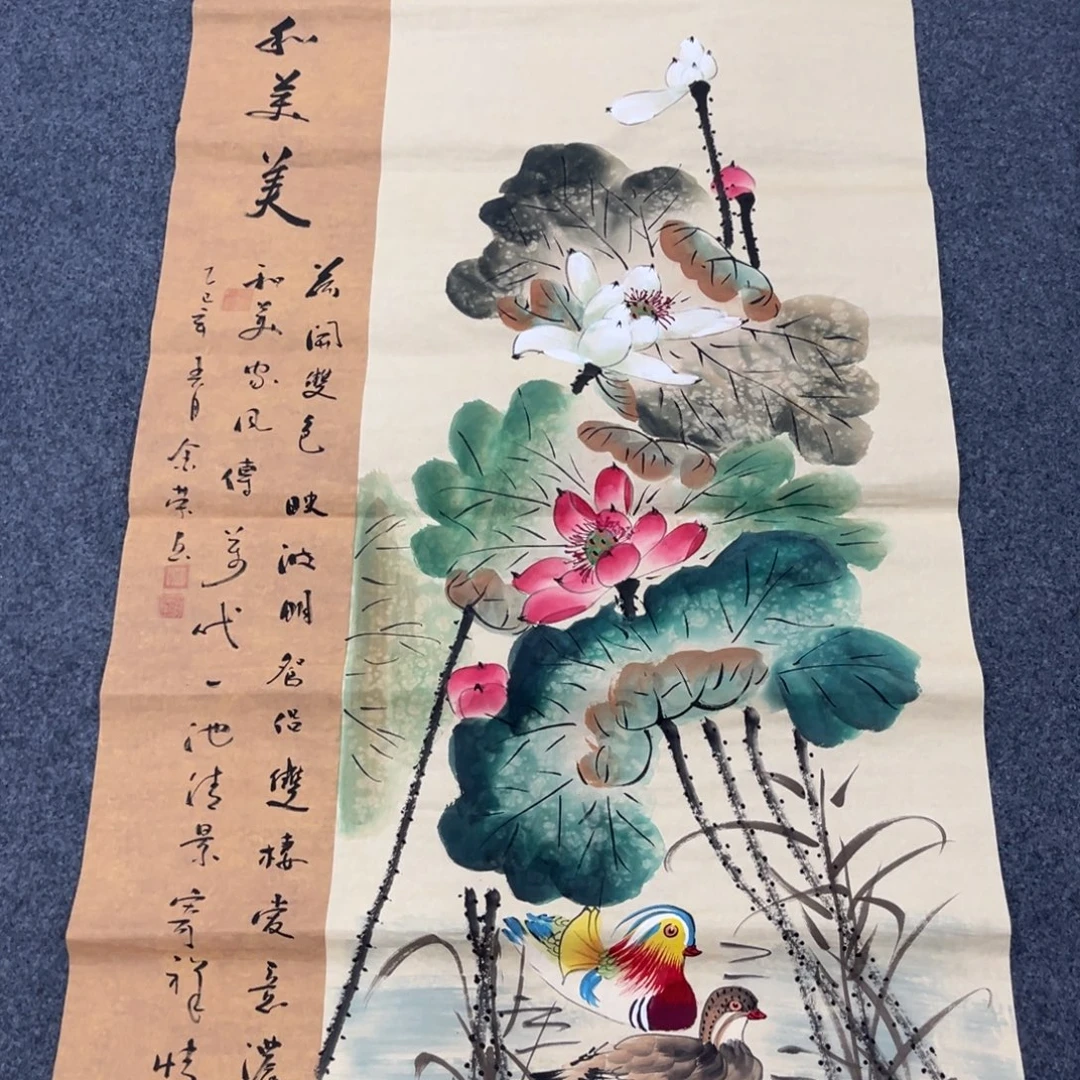 和美美
開雙色映波明鴛侶雙棲愛意濃
和美家風傳萬代一池清景寄祥情
乙巳年月榮